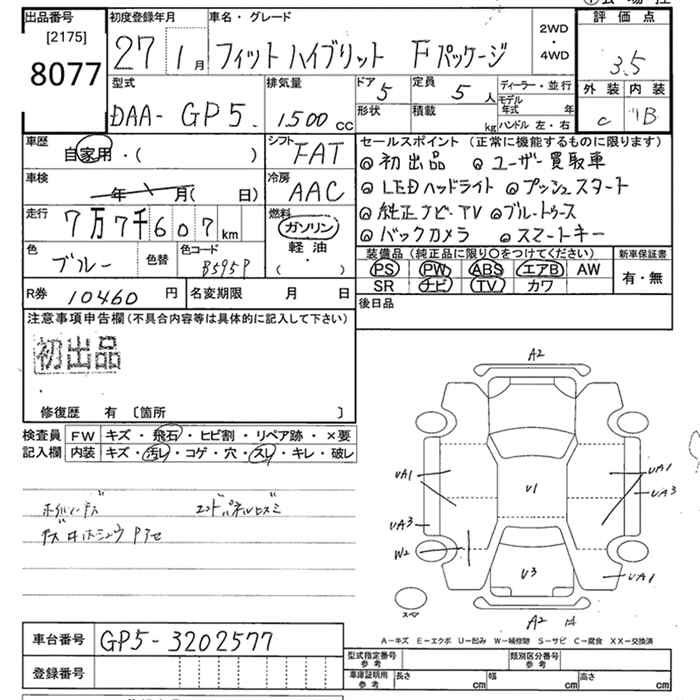 出品番号
[2175]
8077
初度登録年月
27 1月
車名・グレード
フィット ハイブリット Fパッケージ
2WD
・
4WD
評価点
3.5
外装 内装
C B
型式
DAA- GP5
排気量
1500 CC
ドア 5
定員 5 人
形状
積載 kg
ディーラー・並行
モデル年式 年
ハンドル 左・右
車歴
自家用・( )
シフト
FAT
車検
年 月( 日)
冷房
AAC
走行
7万7千607km
燃料
ガソリン
軽油
( ・ )
色
ブルー
色替
色コード
B595P
セールスポイント (正常に機能するものに限ります)
◎初出品 ◎ユーザー買取車
◎LEDヘッドライト ◎プッシュスタート
◎純正ナビ・TV ◎ブルートゥース
◎バックカメラ ◎スマートキー
装備品(純正品に限り○をつけてください)
新車保証書
PS PW ABS エアB AW
SR ナビ TV カワ
有・無
R券 10460 円
名変期限 月 日
後日品
注意事項申告欄(不具合内容等は具体的に記入して下さい)
初出品
修復歴 有 〔箇所 〕
検査員記入欄
FW キズ・飛石・ヒビ割・リペア跡・×要
内装 キズ・汚レ・コゲ・穴・スレ・キレ・破レ
A2
UA1
UA3
W2
U1
U3
UA1
UA3
UA1
A2
スペア
A−キズ E−エクボ U−凹み W−補修跡 S−サビ C−腐食 XX−交換済
車台番号 GP5-3202577
登録番号
型式指定番号 参考
類別区分番号 参考
車庫証明用 参考
長さ cm
幅 cm
高さ cm